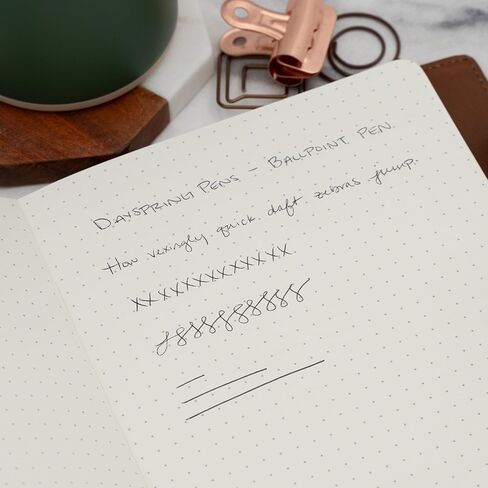 DAYSPRING PENS - BALLPOINT PEN
How vexingly quick daft zebras jump.
XXXXXXXXXXXX